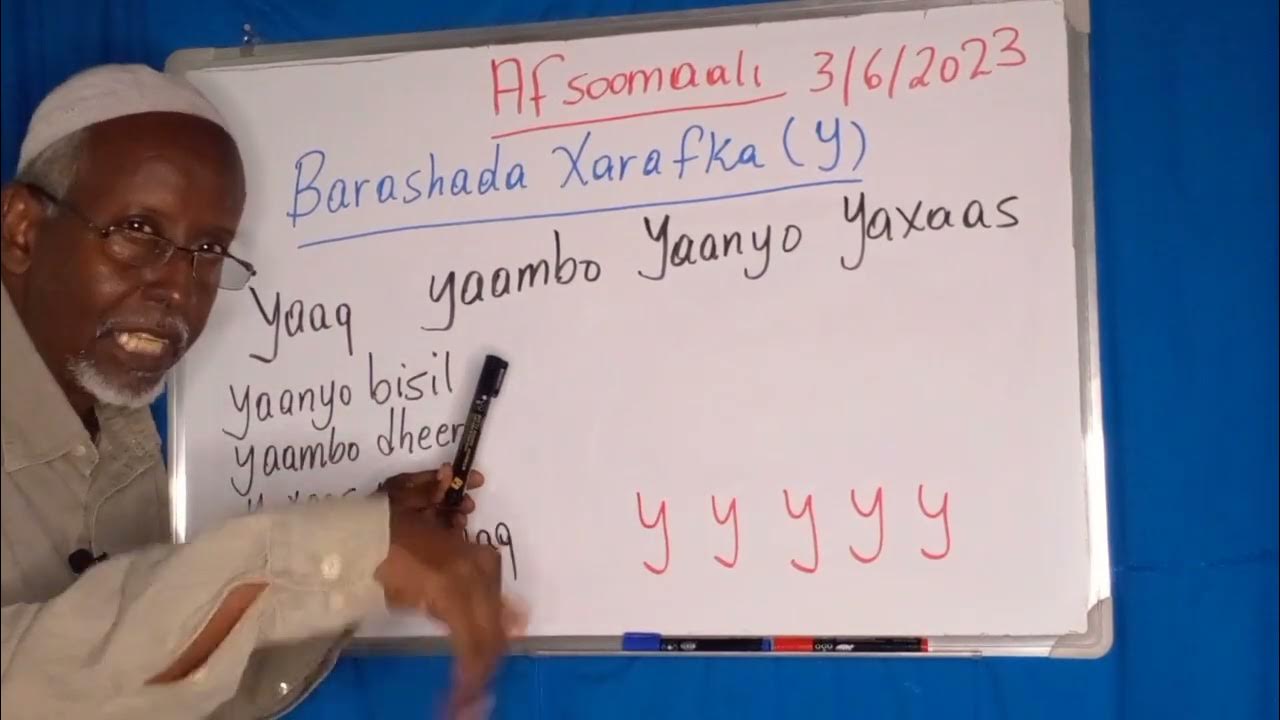 Af soomaali 3/6/2023
Barashada Xarafka (y)
Yaaq yaambo Yaanyo Yaxaas
yaanyo bisil
yaambo dheer
y y y y y